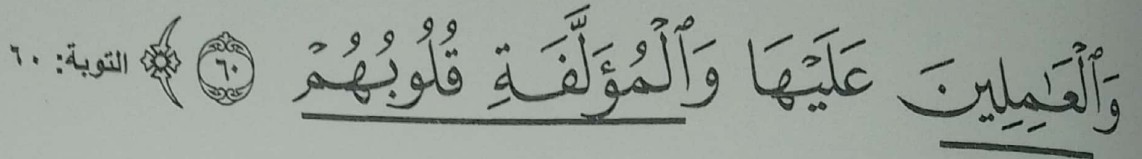 وَٱلْعَٰمِلِينَ عَلَيْهَا وَٱلْمُؤَلَّفَةِ قُلُوبُهُمْ ۝٦٠ ﴾ التوبة: ٦٠